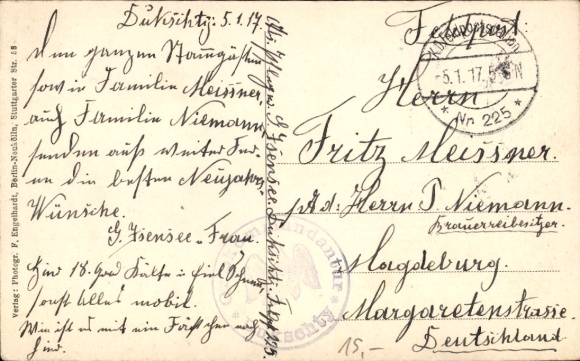 Dukschty: 5.1.17.
Den ganzen Stammgästen
sowie Familie Meissner,
auch Familie Niemann
senden aus weiter Fer-
ne die besten Neujahrs
Wünsche.
G. Isensee u. Frau.
Hier 18. Grad Kälte u. viel Schnee
sonst Alles mobil.
Wie ist es mit ein
hier.
G. Isensee. Dukschti. F.p. 225.
Feldpost.
5.1.17.5-6N
* Nr. 225 *
Herrn
Fritz Meissner.
p. Ad: Herrn P. Niemann.
Brauereibesitzer.
Magdeburg.
Margaretenstrasse.
Deutschland.
Kommandantur
Dukschty
15,-
Verlag: Photogr. F. Engelhardt, Berlin-Neukölln, Stuttgarter Str. 58